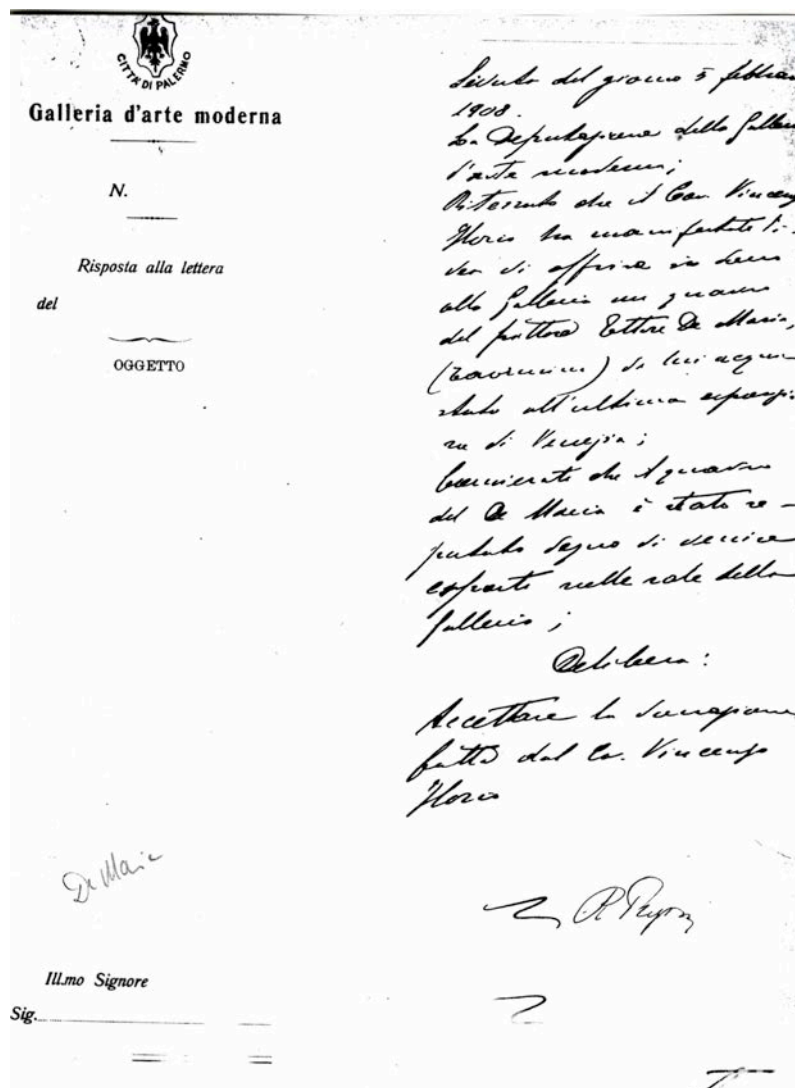 CITTÀ DI PALERMO
Galleria d'arte moderna
N.
Risposta alla lettera
del
OGGETTO
Seduta del giorno 5 febbrai
1908.
La Deputazione della Galleri
d'arte moderna;
Ritenuto che il Cav. Vincenzo
Florio ha manifestato l'i-
dea di offrire in dono
alla Galleria un quadro
del pittore Ettore De Maria,
(Taormina) da lui acqui
stato all'ultima esposizio
ne di Venezia;
che il quadro
del De Maria è stato re-
putato degno di venire
esposto nelle sale della
Galleria;
Delibera:
Accettare la donazione
fatta dal Cav. Vincenzo
Florio
De Maria
Ill.mo Signore
Sig.